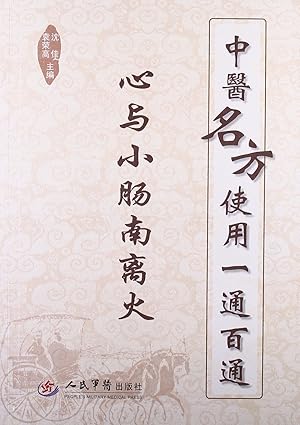 中醫名方使用一通百通
心与小肠南离火
沈佳
袁荣高
主编
人民军医出版社
PEOPLE'S MILITARY MEDICAL PRESS